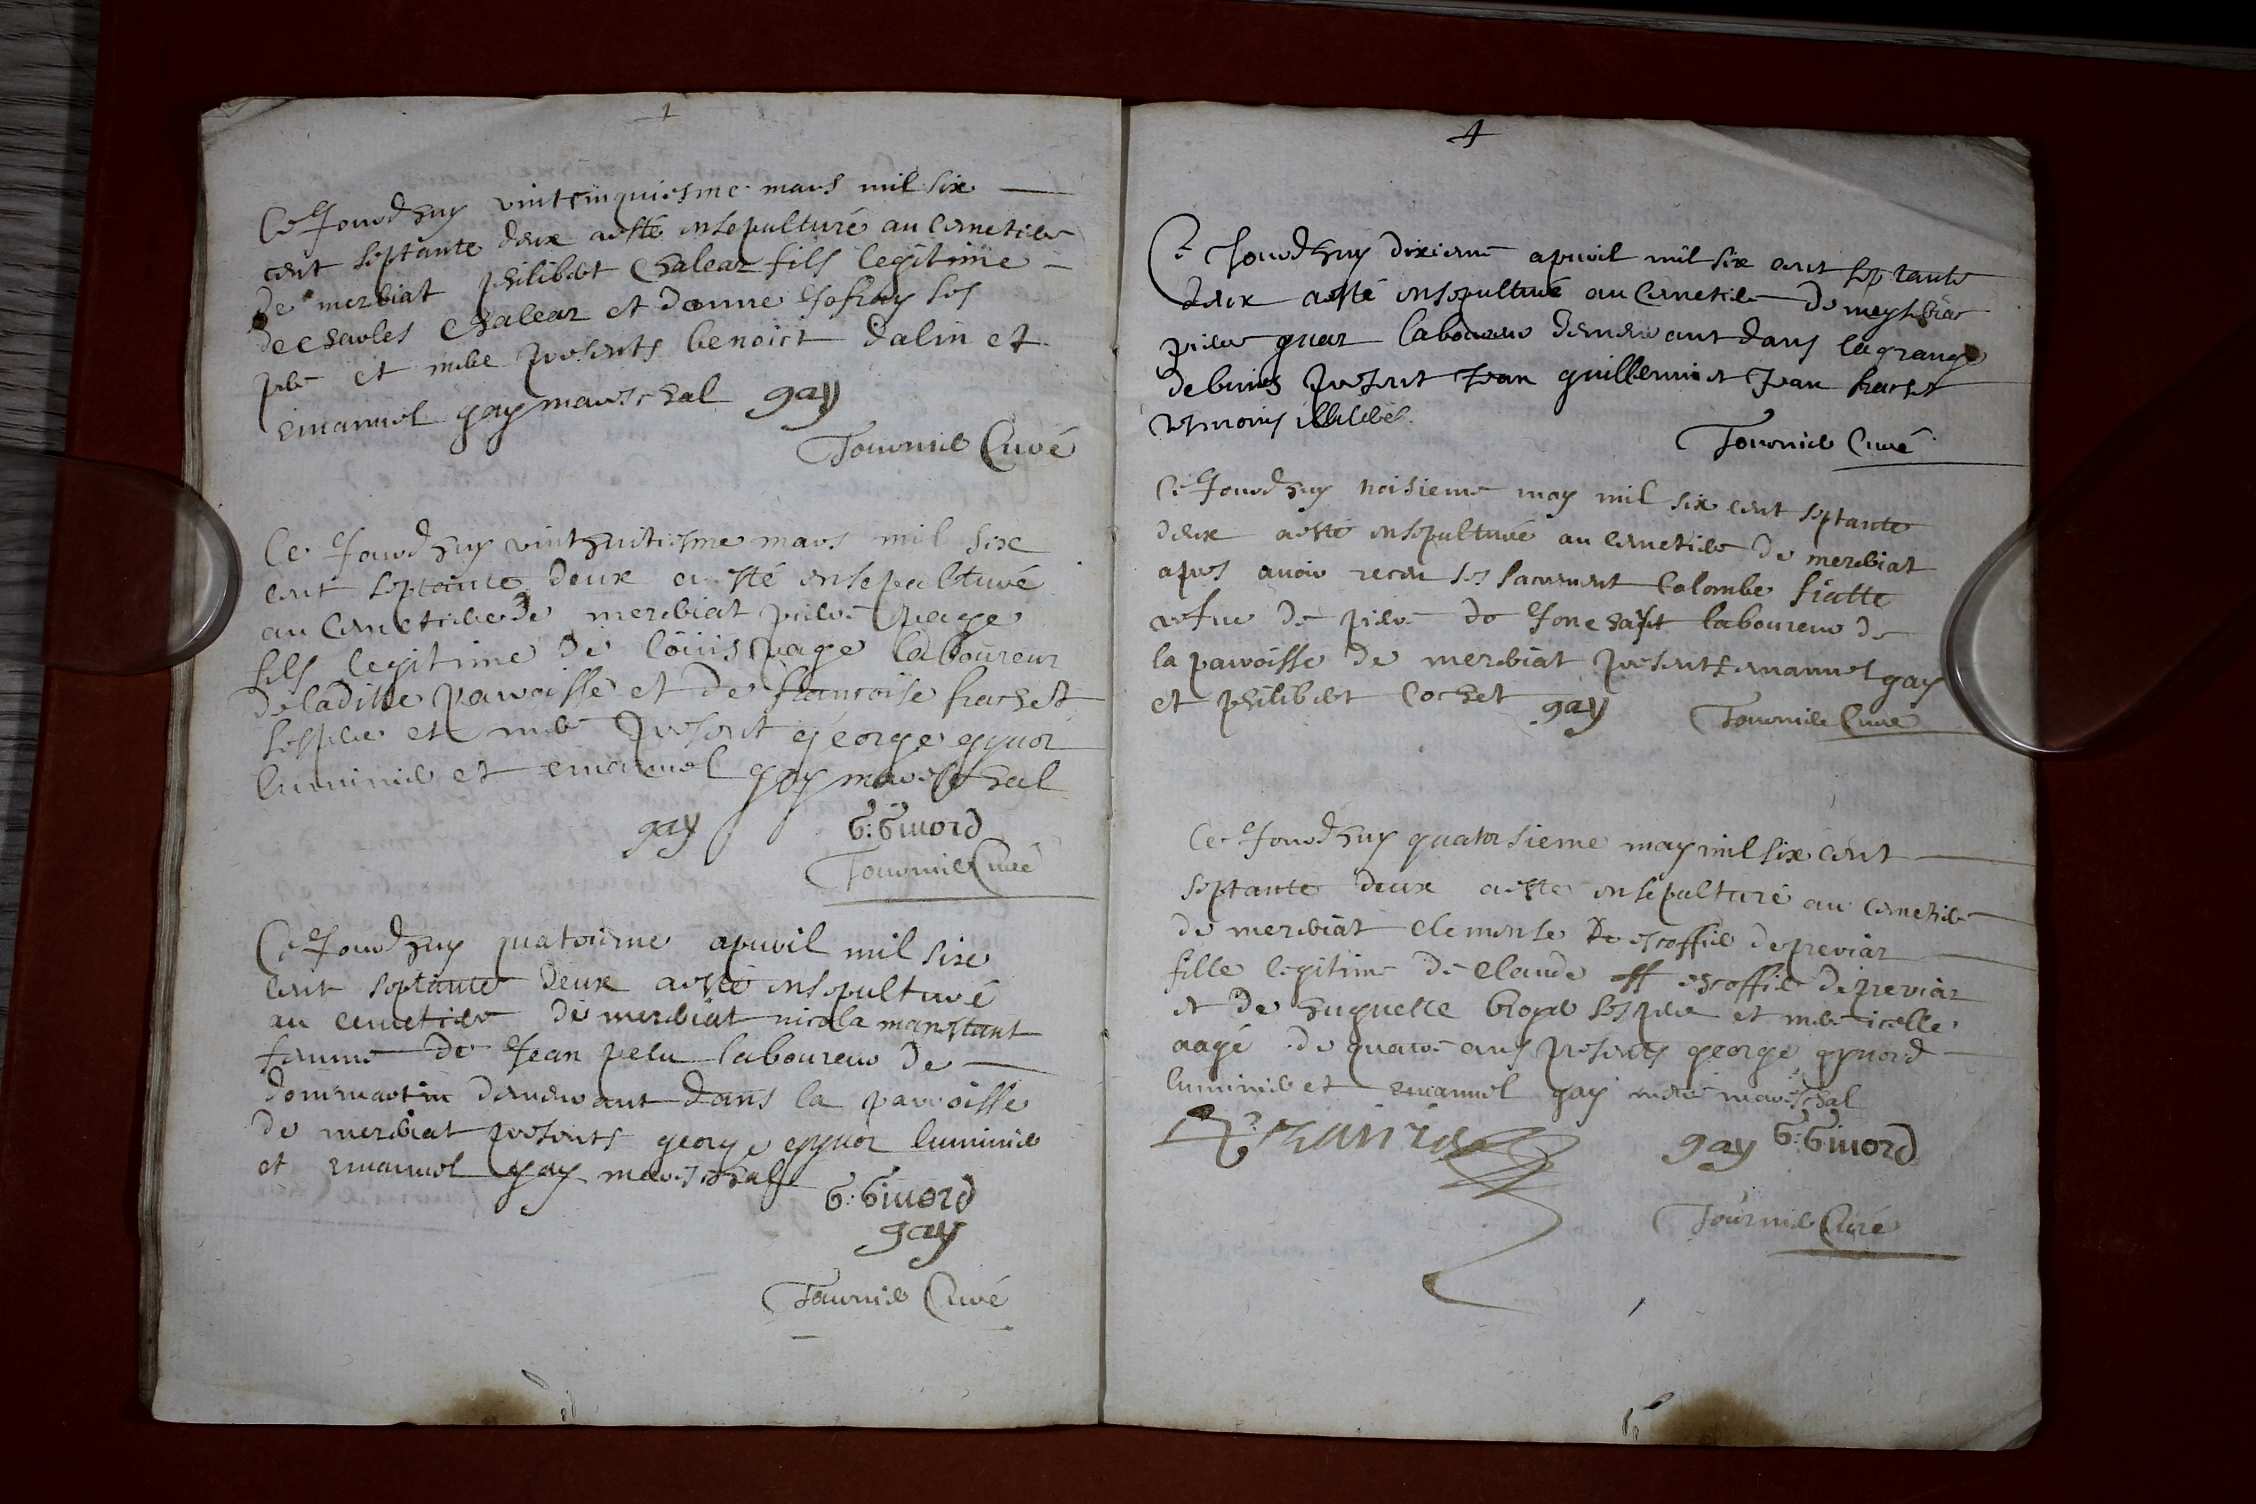 Ce Jourdhuy vintcinquiesme mars mil six
cent septante deux a esté ensepulturé au cemetiere
de meribiat philibert Chalear fils legitime
de charles Chalear et danne Jofray ses
pere et mere presents benoict dalin et
emanuel gay mareschal gay
Tournier Curé
Ce Jourdhuy vinthuitiesme mars mil six
cent septante deux a esté ensepulturé
au cemetiere de meribiat piere page
fils legitime de loüis page laboureur
de laditte parroisse et de françoise frachet
ses pere et mere present george gyuor
luminier et emanuel gay mareschal
gay G: Giuord
Tournier Curé
Ce Jourdhuy quatorieme apvril mil six
cent septante deux a esté ensepulturé
au cemetiere de meribiat nicola manstant
femme de Jean pelu laboureur de
dommartin demeurant dans la parroisse
de meribiat presents george gyuor luminier
et emanuel gay mareschal G: Giuord
gay
Tournier Curé
Ce Jourdhuy dixieme apvril mil six cent septante
deux a esté ensepulturé au cemetiere de
piere guar laboureur demeurant dans la grange
de present Jean guillermin et Jean frachet
tesmoins
Tournier Curé
Ce Jourdhuy troisieme may mil six cent septante
deux a esté ensepulturé au cemetiere de meribiat
apres auoir receu ses sacrement Colombe fiatte
vefue de piere de laboureur de
la parroisse de meribiat present emanuel gay
et philibert Cochet gay Tournier Curé
Ce Jourdhuy quatorsieme may mil six cent
septante deux a esté ensepulturé au cemetiere
de meribiat clemense escoffier de preuiar
fille legitime de claude escoffier de preuiar
et de huguette broyer ses pere et mere icelle
aagé de quatre ans presents george gyuord
luminier et emanuel gay mareschal
gay G: Giuord
Tournier Curé